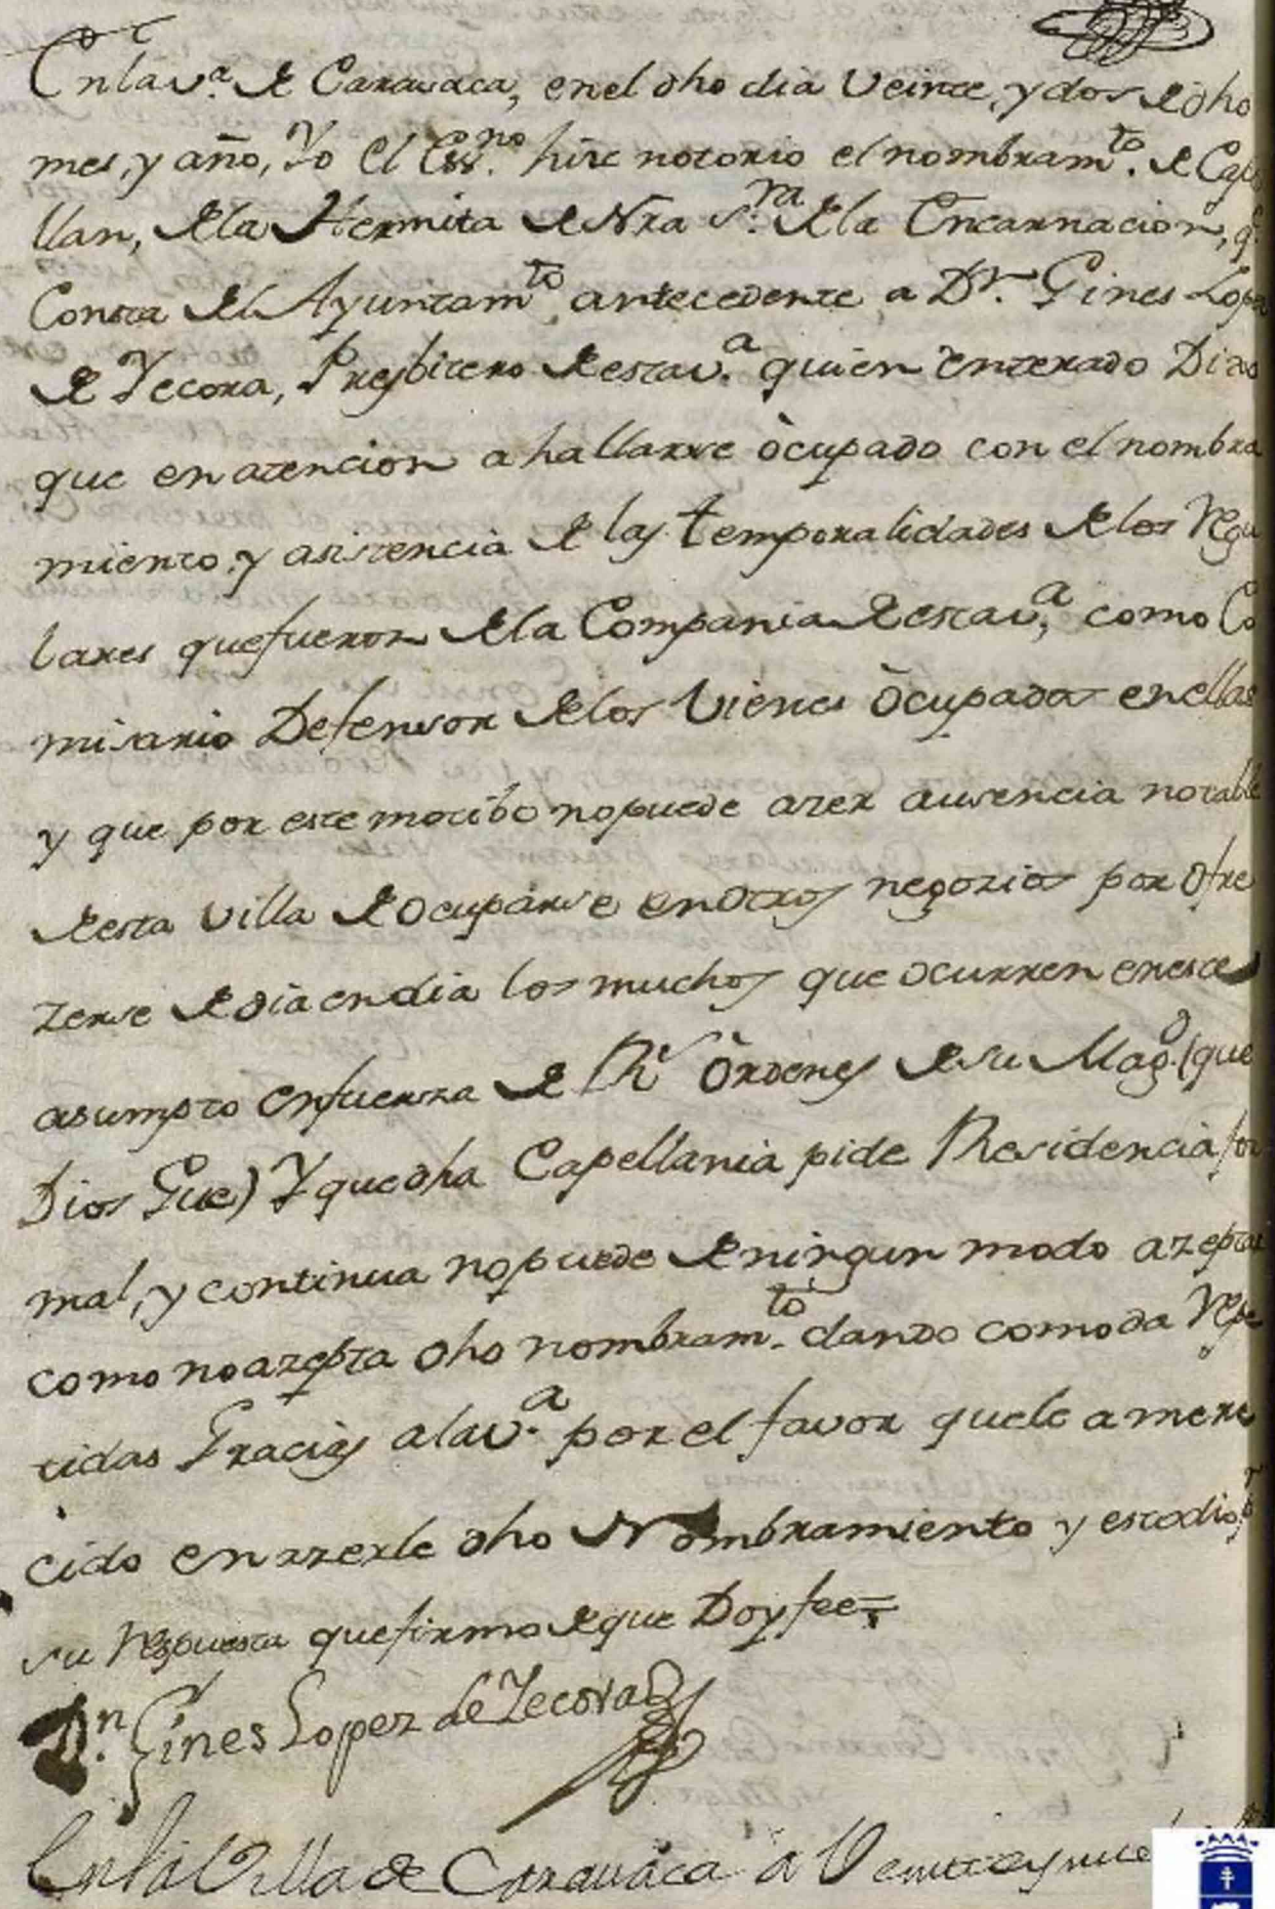 En la v.ª de Caravaca, en el dho dia Veinte, y dos de dho
mes, y año, Yo el Ess.no hize notorio el nombram.to de Cape
llan, de la Hermita de Nra S.ra de la Encarnacion, q.
Consta del Ayuntam.to antecedente a Dn. Gines Lopez
de Tecora, Presbitero de esta v.ª quien enterado Dixo
que en atencion a hallarse òcupado con el nombra
miento, y asistencia de las temporalidades de los Regu
lares que fueron de la Compania de esta v.ª, como Co
misario Defensor de los Vienes òcupados en ellas
y que por este motibo no puede azer ausencia notable
de esta villa de ocuparse en otros negozios por ofre
zerse de dia en dia los muchos que ocurren en este
asumpto en fuerza de Rs Òrdenes de su Magd. (que
Dios Gue) Y que dha Capellania pide Residencia for
mal, y continua no puede de ningun modo azeptar
como no azepta dho nombram.to dando como da Repe
tidas Gracias a la v.ª por el favor que le a mere
cido en azerle dho Nombramiento y esto dio por
su Respuesta que firmo de que Doy fee=
Dn. Gines Lopez de Tecora
En la Villa de Caravaca a Veinte y nueve